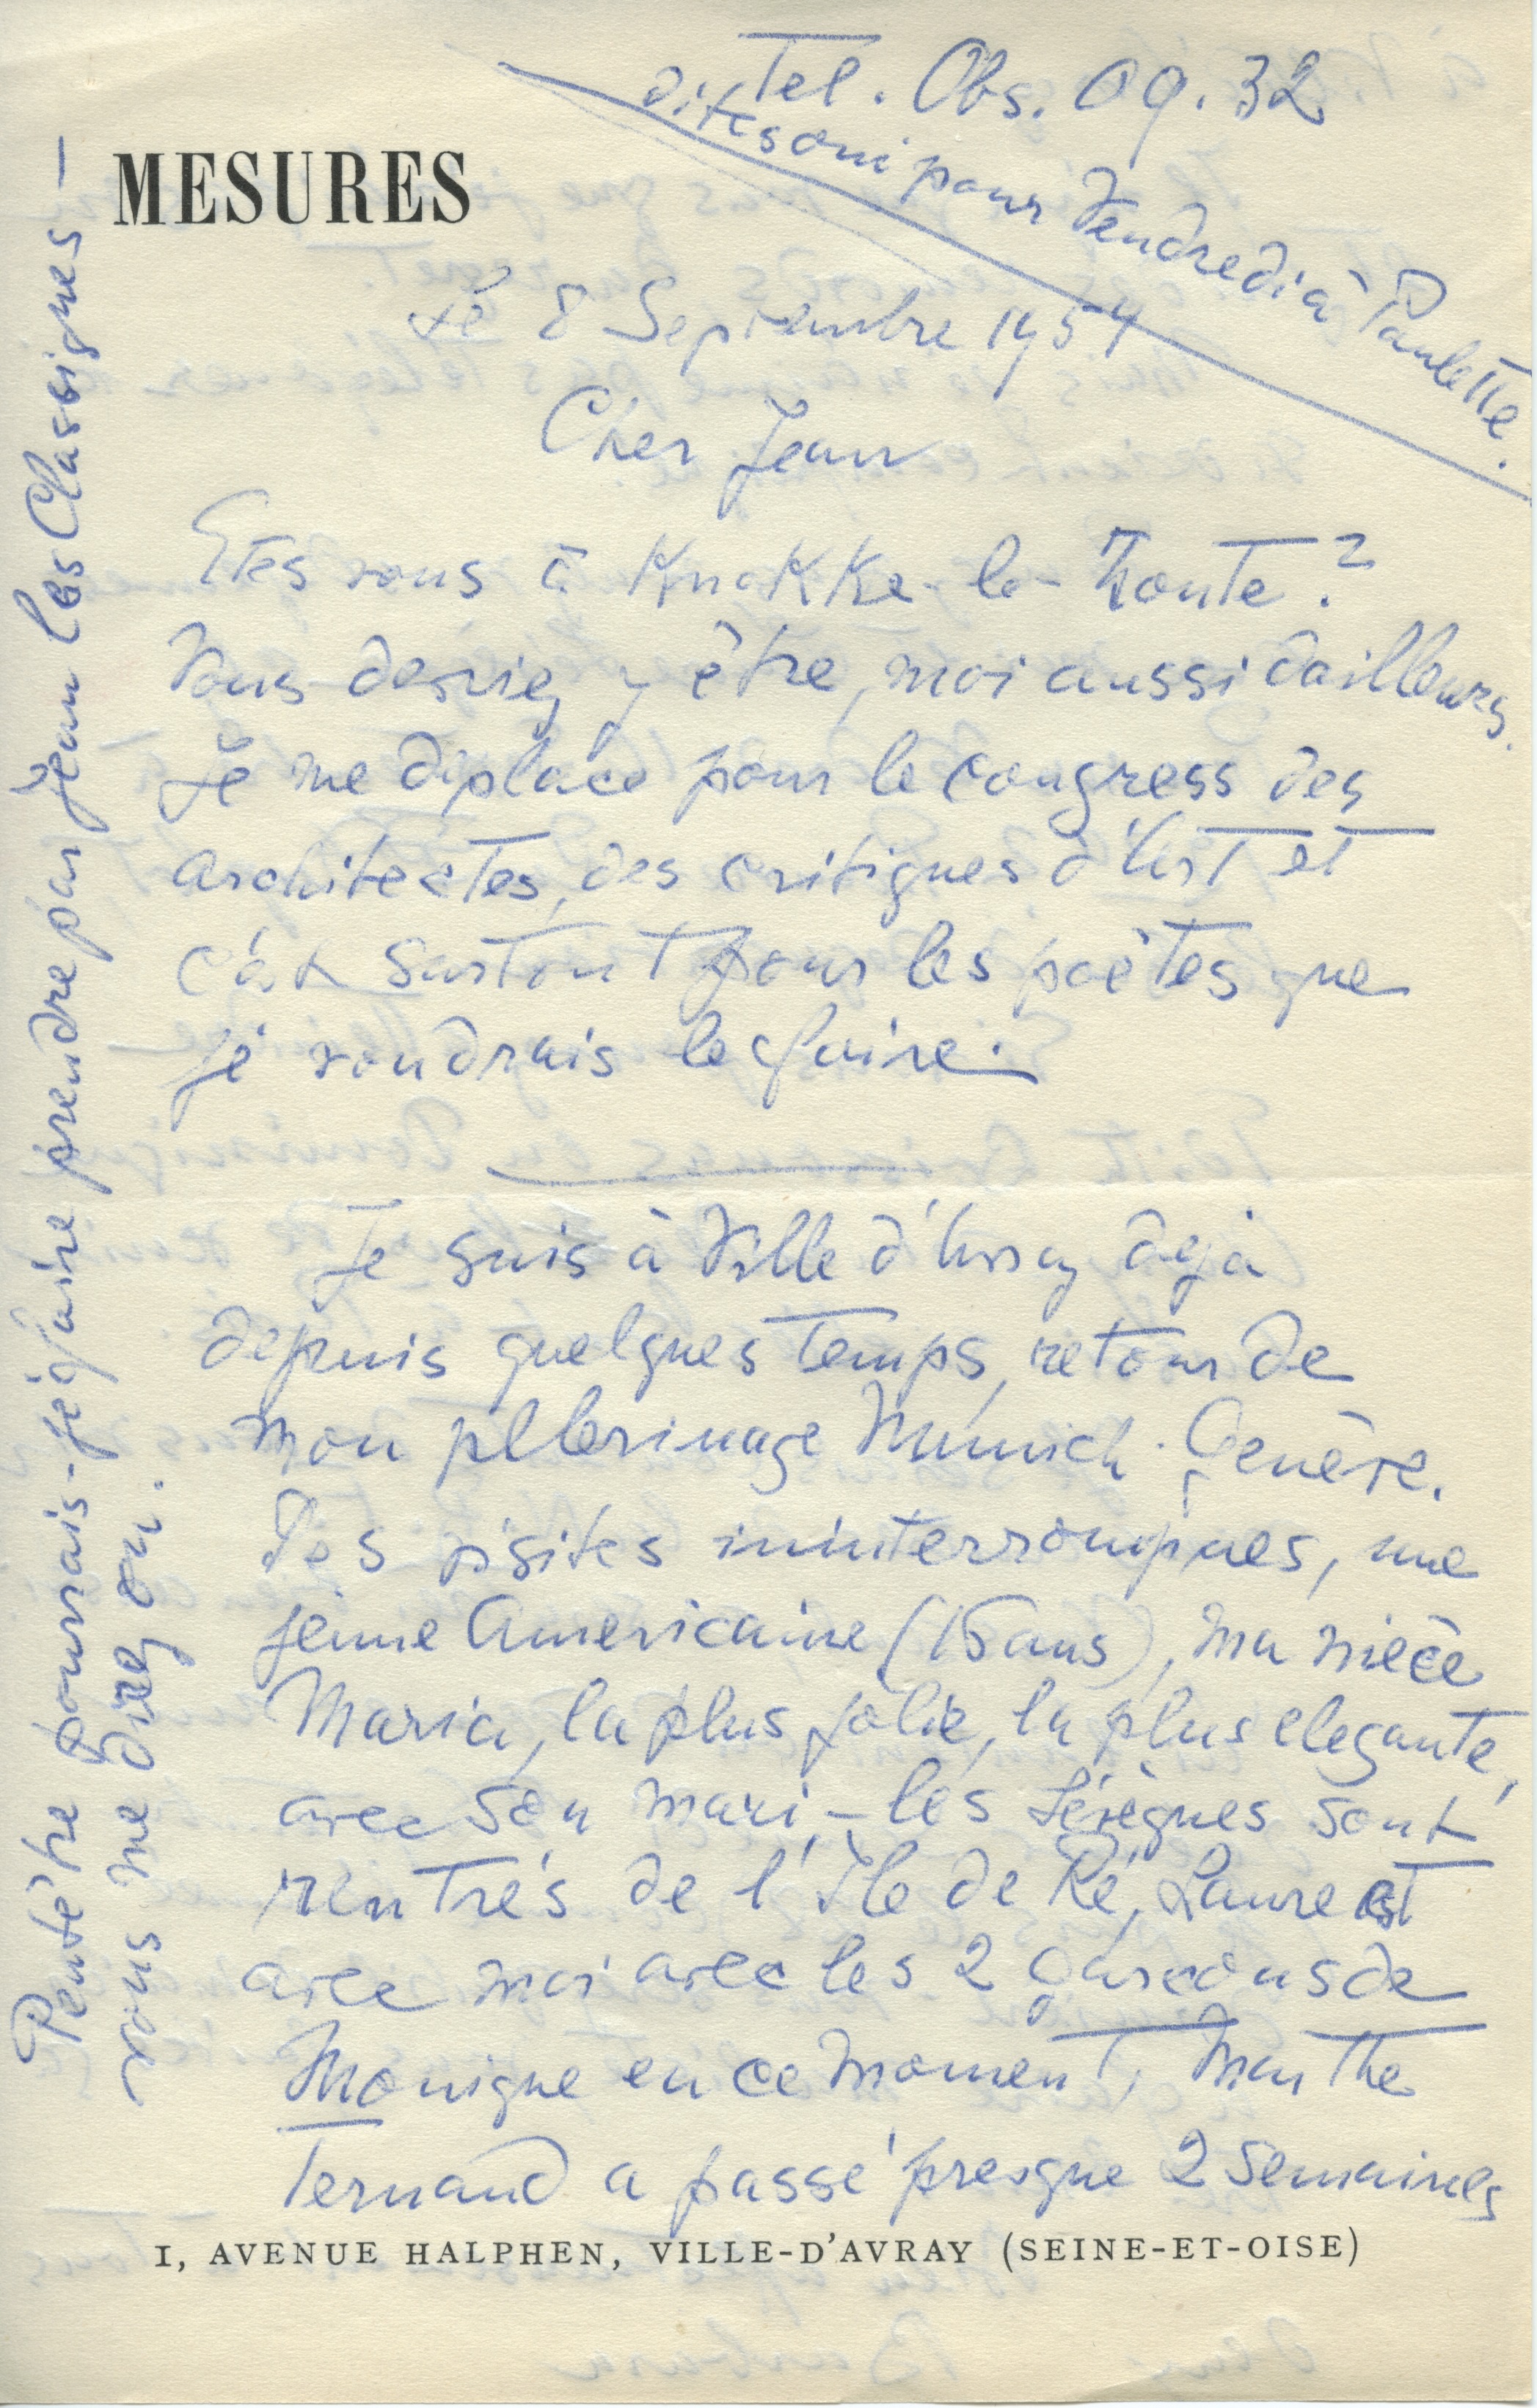 Tel. Obs. 09.32
dites oui pour Vendredi à Paulette.
MESURES
Le 8 Septembre 1954
Cher Jean
Etes vous à Knokke-le-Zoute ?
Vous deviez y être, moi aussi dailleurs.
Je me déplace pour le congress des
architectes, des critiques d'Art et
c'est surtout pour les poètes que
je voudrais le faire.
Je suis à Ville d'Avray dejà
depuis quelques temps, retour de
mon pelerinage Munich - Genève.
Des visites ininterrompues, une
jeune Americaine (15 ans), ma nièce
Maria, la plus jolie, la plus elegante,
avec son mari, - les Lévèques sont
rentrés de l'Ile de Ré, Laure est
avec moi avec les 2 garcons de
Monique en ce moment, Marthe
Fernand a passé presque 2 semaines
1, AVENUE HALPHEN, VILLE-D'AVRAY (SEINE-ET-OISE)
Peutêtre pourrais-je faire prendre par Jean les Classiques —
vous me direz oui.